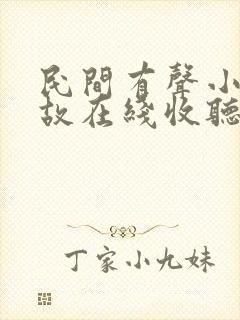 民間有聲小
故在綫收聽
丁家小九妹